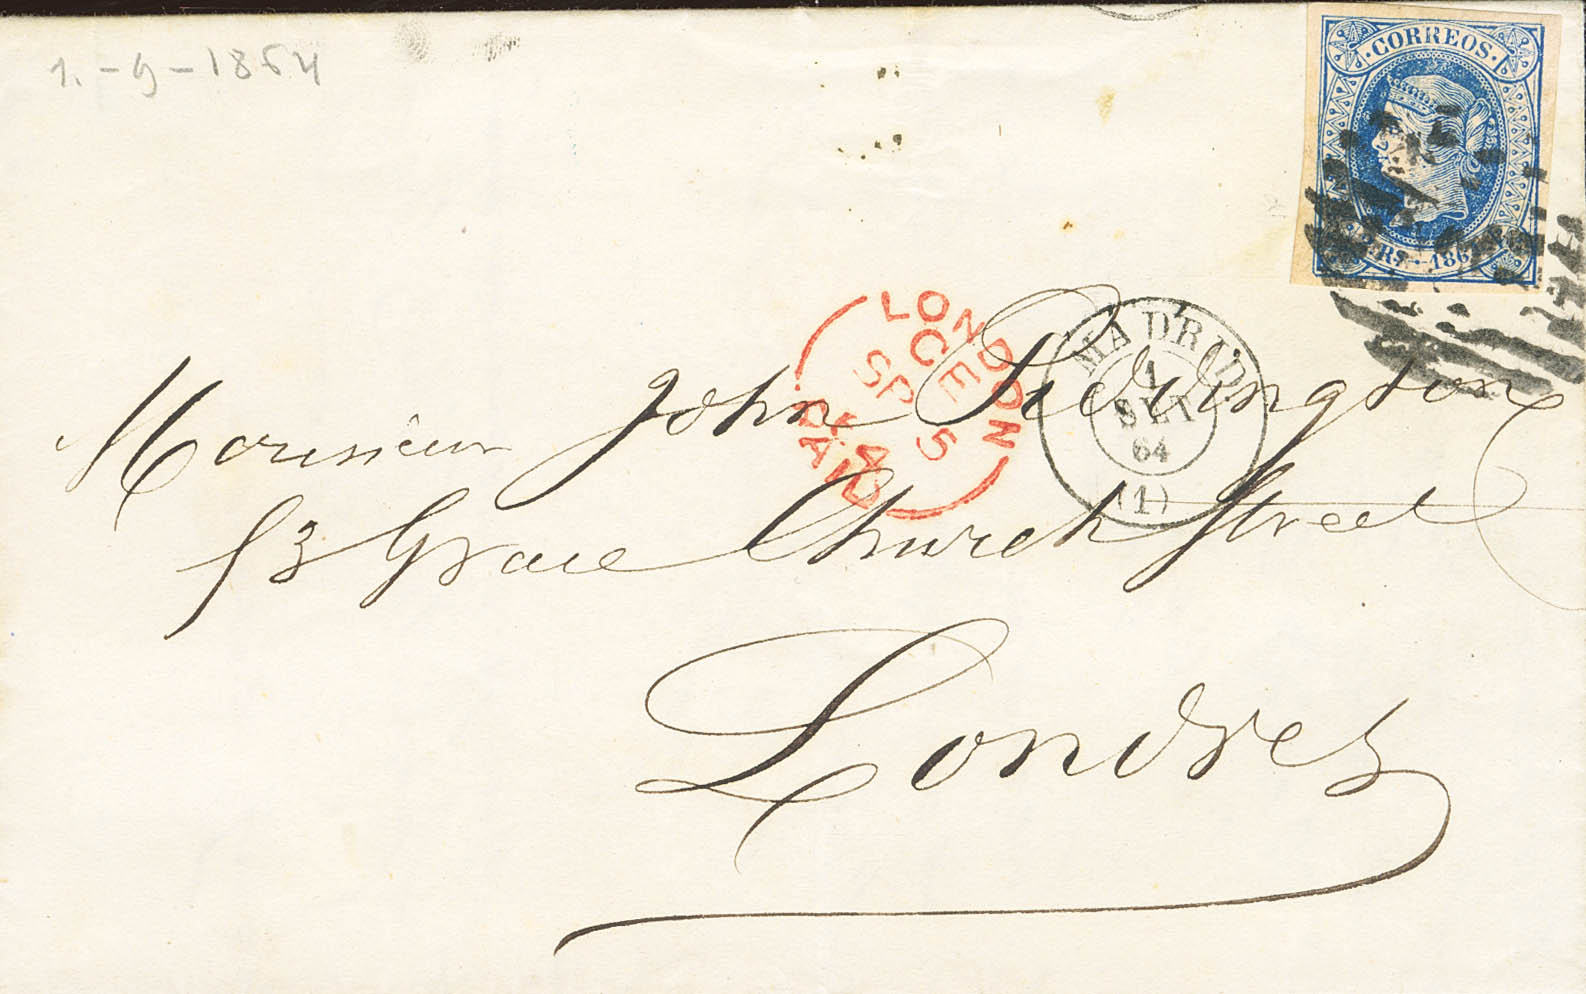 1. - 9 - 1864
CORREOS
RS. 186
LONDON
CE
SP 5
64
PAID
MADRID
1
SET
64
(1)
Monsieur John Puddington
53 Grace Church Street
Londres